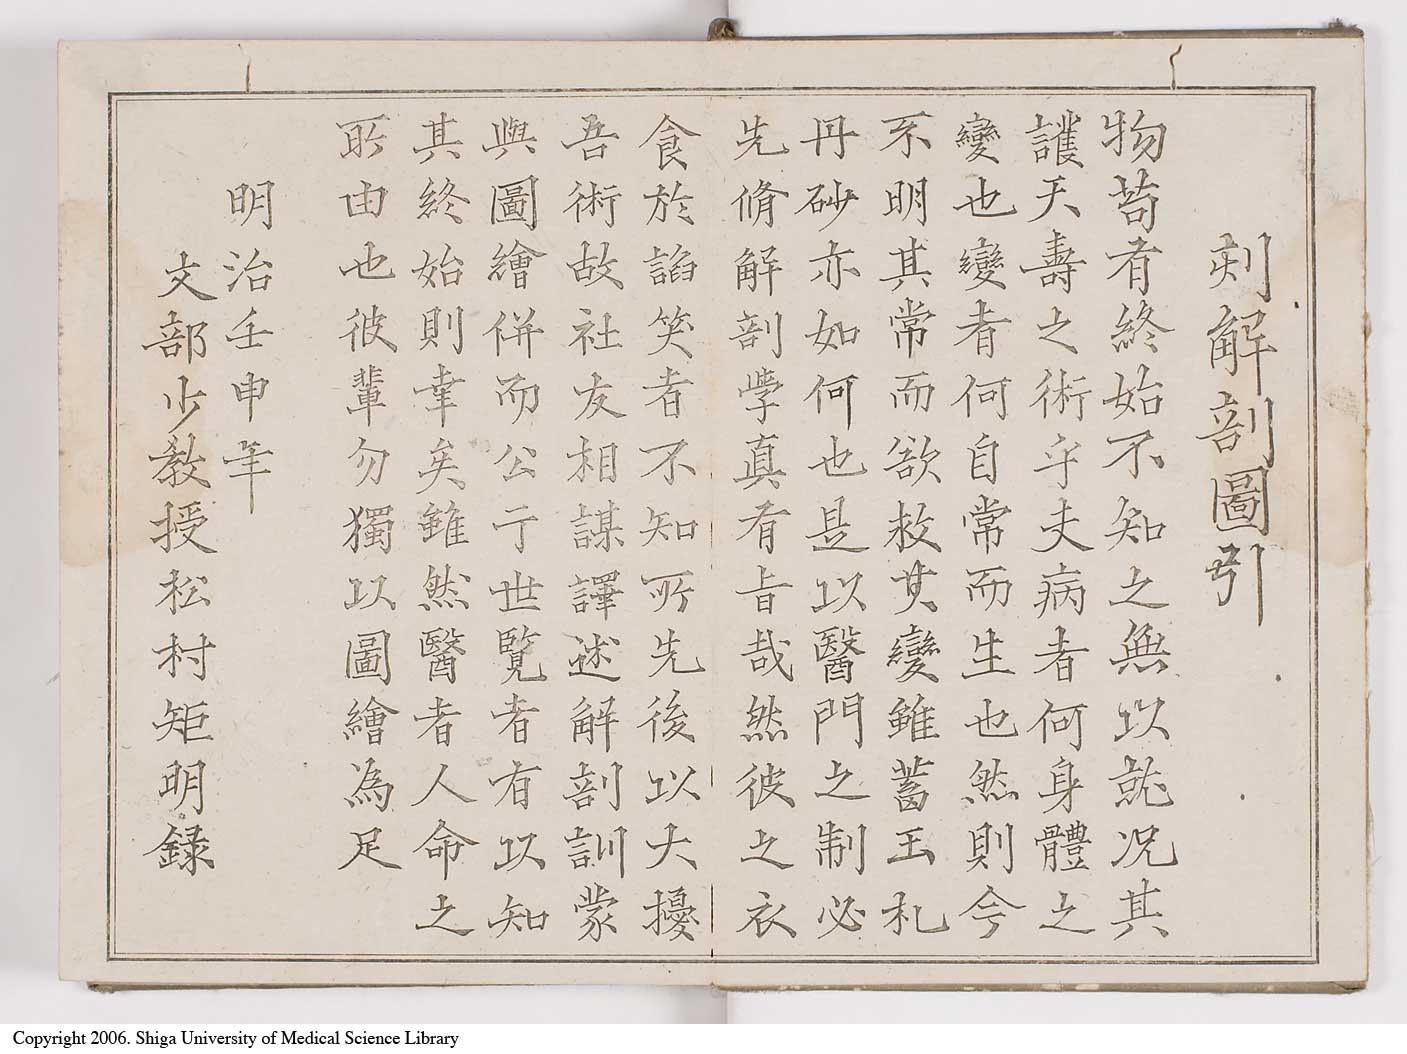 刻解剖圖引
物苟有終始不知之無以就况其
護夭壽之術乎夫病者何身體之
變也變者何自常而生也然則今
不明其常而欲救其變雖蓄玉札
丹砂亦如何也是以醫門之制必
先脩解剖學真有旨哉然彼之衣
食於諂笑者不知所先後以大擾
吾術故社友相謀譯述解剖訓蒙
與圖繪併而公于世覽者有以知
其終始則幸矣雖然醫者人命之
所由也彼輩勿獨以圖繪為足
明治壬申年
文部少教授松村矩明錄
Copyright 2006. Shiga University of Medical Science Library